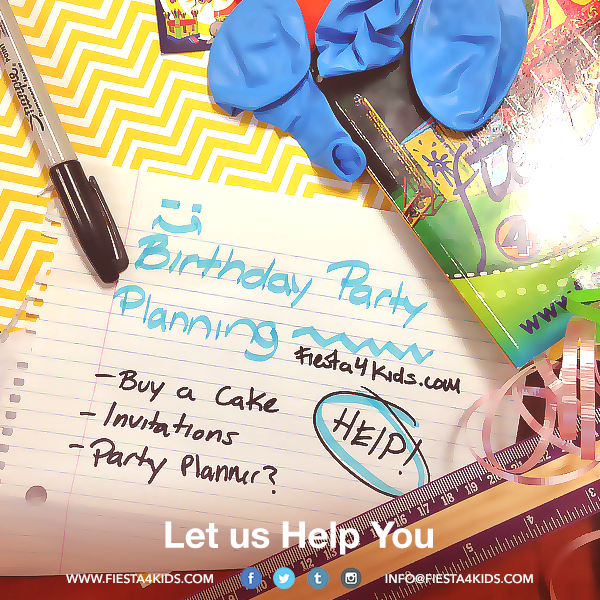 Sharpie
Birthday Party
Planning
Fiesta4Kids.com
- Buy a Cake
- Invitations
- Party Planner?
HELP!
4
www.
Let us Help You
WWW.FIESTA4KIDS.COM
INFO@FIESTA4KIDS.COM